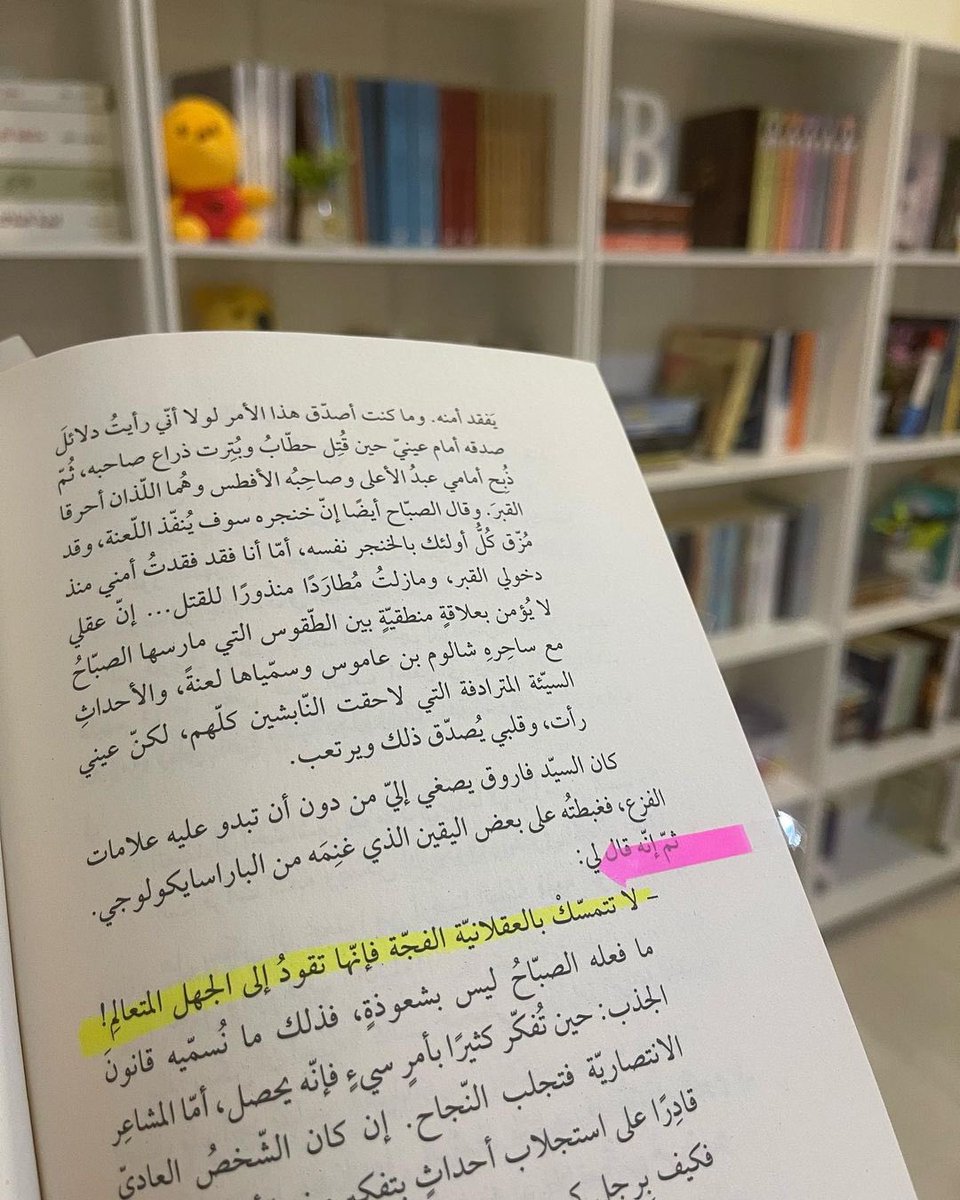 يَفقد أمنه. وما كنت أصدّق هذا الأمر لولا أنّي رأيتُ دلائلَ
صدقه أمام عينيّ حين قُتِل حطّابُ وبُتِرت ذراع صاحبه، ثُمّ
ذُبِح أمامي عبدُ الأعلى وصاحِبُه الأفطس وهُما اللّذان أحرقا
القبرَ. وقال الصبّاح أيضًا إنّ خنجره سوف يُنفّذ اللّعنة، وقد
مُزّق كُلُّ أولئك بالخنجر نفسه، أمّا أنا فقد فقدتُ أمني منذ
دخولي القبر، ومازلتُ مُطارَدًا منذورًا للقتل... إنّ عقلي
لا يُؤمن بعلاقةٍ منطقيّةٍ بين الطّقوس التي مارسها الصبّاحُ
مع ساحِرِه شالوم بن عاموس وسمّياها لعنةً، والأحداثِ
السيّئة المترادفة التي لاحقت النّابشين كلّهم، لكنّ عيني
رأت، وقلبي يُصدّق ذلك ويرتعب.
كان السيّد فاروق يصغي إليّ من دون أن تبدو عليه علامات
الفزع، فغبطتُه على بعض اليقين الذي غنِمَه من الباراسايكولوجي.
ثمّ إنّه قال لي:
- لا تتمسّكْ بالعقلانيّة الفجّة فإنّها تقودُ إلى الجهل المتعالِم!
ما فعله الصبّاحُ ليس بشعوذةٍ، فذلك ما نُسمّيه قانونَ
الجذب: حين تُفكّر كثيرًا بأمرٍ سيءٍ فإنّه يحصل، أمّا المشاعِر
الانتصاريّة فتجلب النّجاح. إن كان الشّخصُ العاديّ
قادِرًا على استجلاب أحداثٍ بتفكير
فكيف برجل
B